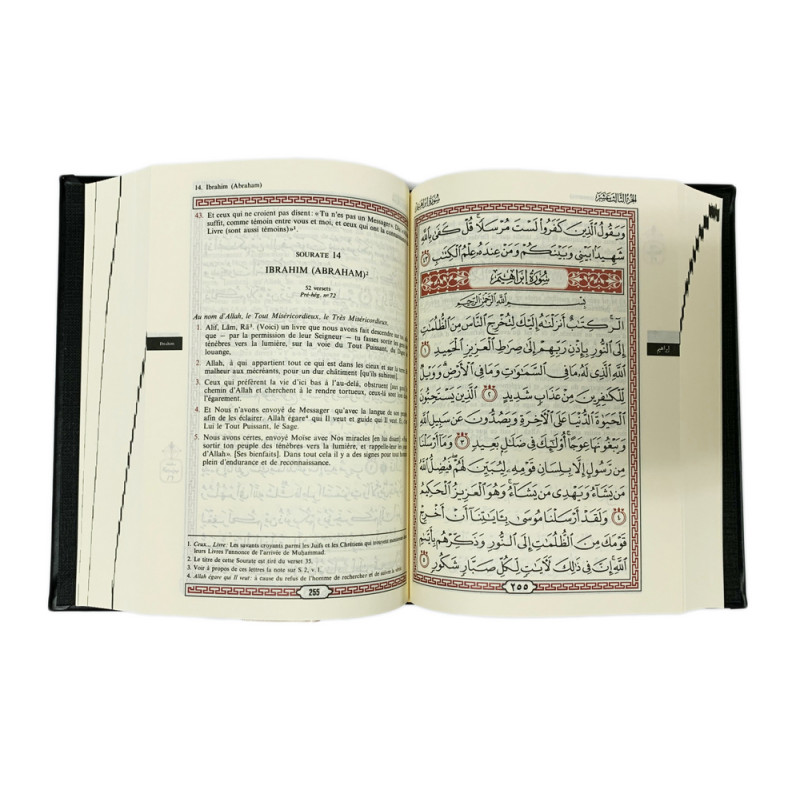 14. Ibrahim (Abraham)
43. Et ceux qui ne croient pas disent: «Tu n'es pas un Messager». Dis
suffit, comme témoin entre vous et moi, et ceux qui ont la
Livre (sont aussi témoins)»¹.
SOURATE 14
IBRAHIM (ABRAHAM)²
52 versets
Pré-hég. n° 72
Au nom d'Allah, le Tout Miséricordieux, le Très Miséricordieux.
1. Alif, Lâm, Râ³. (Voici) un livre que nous avons fait descendre sur
que — par la permission de leur Seigneur — tu fasses sortir les
ténèbres vers la lumière, sur la voie du Tout Puissant, du
louange.
2. Allah, à qui appartient tout ce qui est dans les cieux et sur la
malheur aux mécréants, pour un dur châtiment [qu'ils subiront]
3. Ceux qui préfèrent la vie d'ici bas à l'au-delà, obstruent [aux
chemin d'Allah et cherchent à le rendre tortueux, ceux-là sont
l'égarement.
4. Et Nous n'avons envoyé de Messager qu'avec la langue de son
afin de les éclairer. Allah égare⁴ qui Il veut et guide qui Il
Lui le Tout Puissant, le Sage.
5. Nous avons certes, envoyé Moïse avec Nos miracles [en lui disant]
sortir ton peuple des ténèbres vers la lumière, et rappelle-leur les
d'Allah». [Ses bienfaits]. Dans tout cela il y a des signes pour tout
plein d'endurance et de reconnaissance.
1. Ceux... Livre: Les savants croyants parmi les Juifs et les Chrétiens qui
leurs Livres l'annonce de l'arrivée de Muhammad.
2. Le titre de cette Sourate est tiré du verset 35.
3. Voir à propos de ces lettres la note sur S.2, v.1.
4. Allah égare qui Il veut: à cause du refus de l'homme de rechercher et de suivre la
255
Ibrahim
الجزء الثالث عشر
سورة إبراهيم
وَيَقُولُ الَّذِينَ كَفَرُوا لَسْتَ مُرْسَلًا قُلْ كَفَى بِاللَّهِ
شَهِيدًا بَيْنِي وَبَيْنَكُمْ وَمَنْ عِندَهُ عِلْمُ الْكِتَابِ ٤٣
سورة إبراهيم
بسم الله الرحمن الرحيم
الر كِتَابٌ أَنزَلْنَاهُ إِلَيْكَ لِتُخْرِجَ النَّاسَ مِنَ الظُّلُمَاتِ
إِلَى النُّورِ بِإِذْنِ رَبِّهِمْ إِلَى صِرَاطِ الْعَزِيزِ الْحَمِيدِ ١
اللَّهِ الَّذِي لَهُ مَا فِي السَّمَاوَاتِ وَمَا فِي الْأَرْضِ وَوَيْلٌ
لِّلْكَافِرِينَ مِنْ عَذَابٍ شَدِيدٍ ٢ الَّذِينَ يَسْتَحِبُّونَ
الْحَيَاةَ الدُّنْيَا عَلَى الْآخِرَةِ وَيَصُدُّونَ عَن سَبِيلِ اللَّهِ
وَيَبْغُونَهَا عِوَجًا أُولَئِكَ فِي ضَلَالٍ بَعِيدٍ ٣ وَمَا أَرْسَلْنَا
مِن رَّسُولٍ إِلَّا بِلِسَانِ قَوْمِهِ لِيُبَيِّنَ لَهُمْ فَيُضِلُّ اللَّهُ
مَن يَشَاءُ وَيَهْدِي مَن يَشَاءُ وَهُوَ الْعَزِيزُ الْحَكِيمُ
٤ وَلَقَدْ أَرْسَلْنَا مُوسَى بِآيَاتِنَا أَنْ أَخْرِجْ
قَوْمَكَ مِنَ الظُّلُمَاتِ إِلَى النُّورِ وَذَكِّرْهُم بِأَيَّامِ
اللَّهِ إِنَّ فِي ذَلِكَ لَآيَاتٍ لِّكُلِّ صَبَّارٍ شَكُورٍ ٥
٢٥٥
إبراهيم